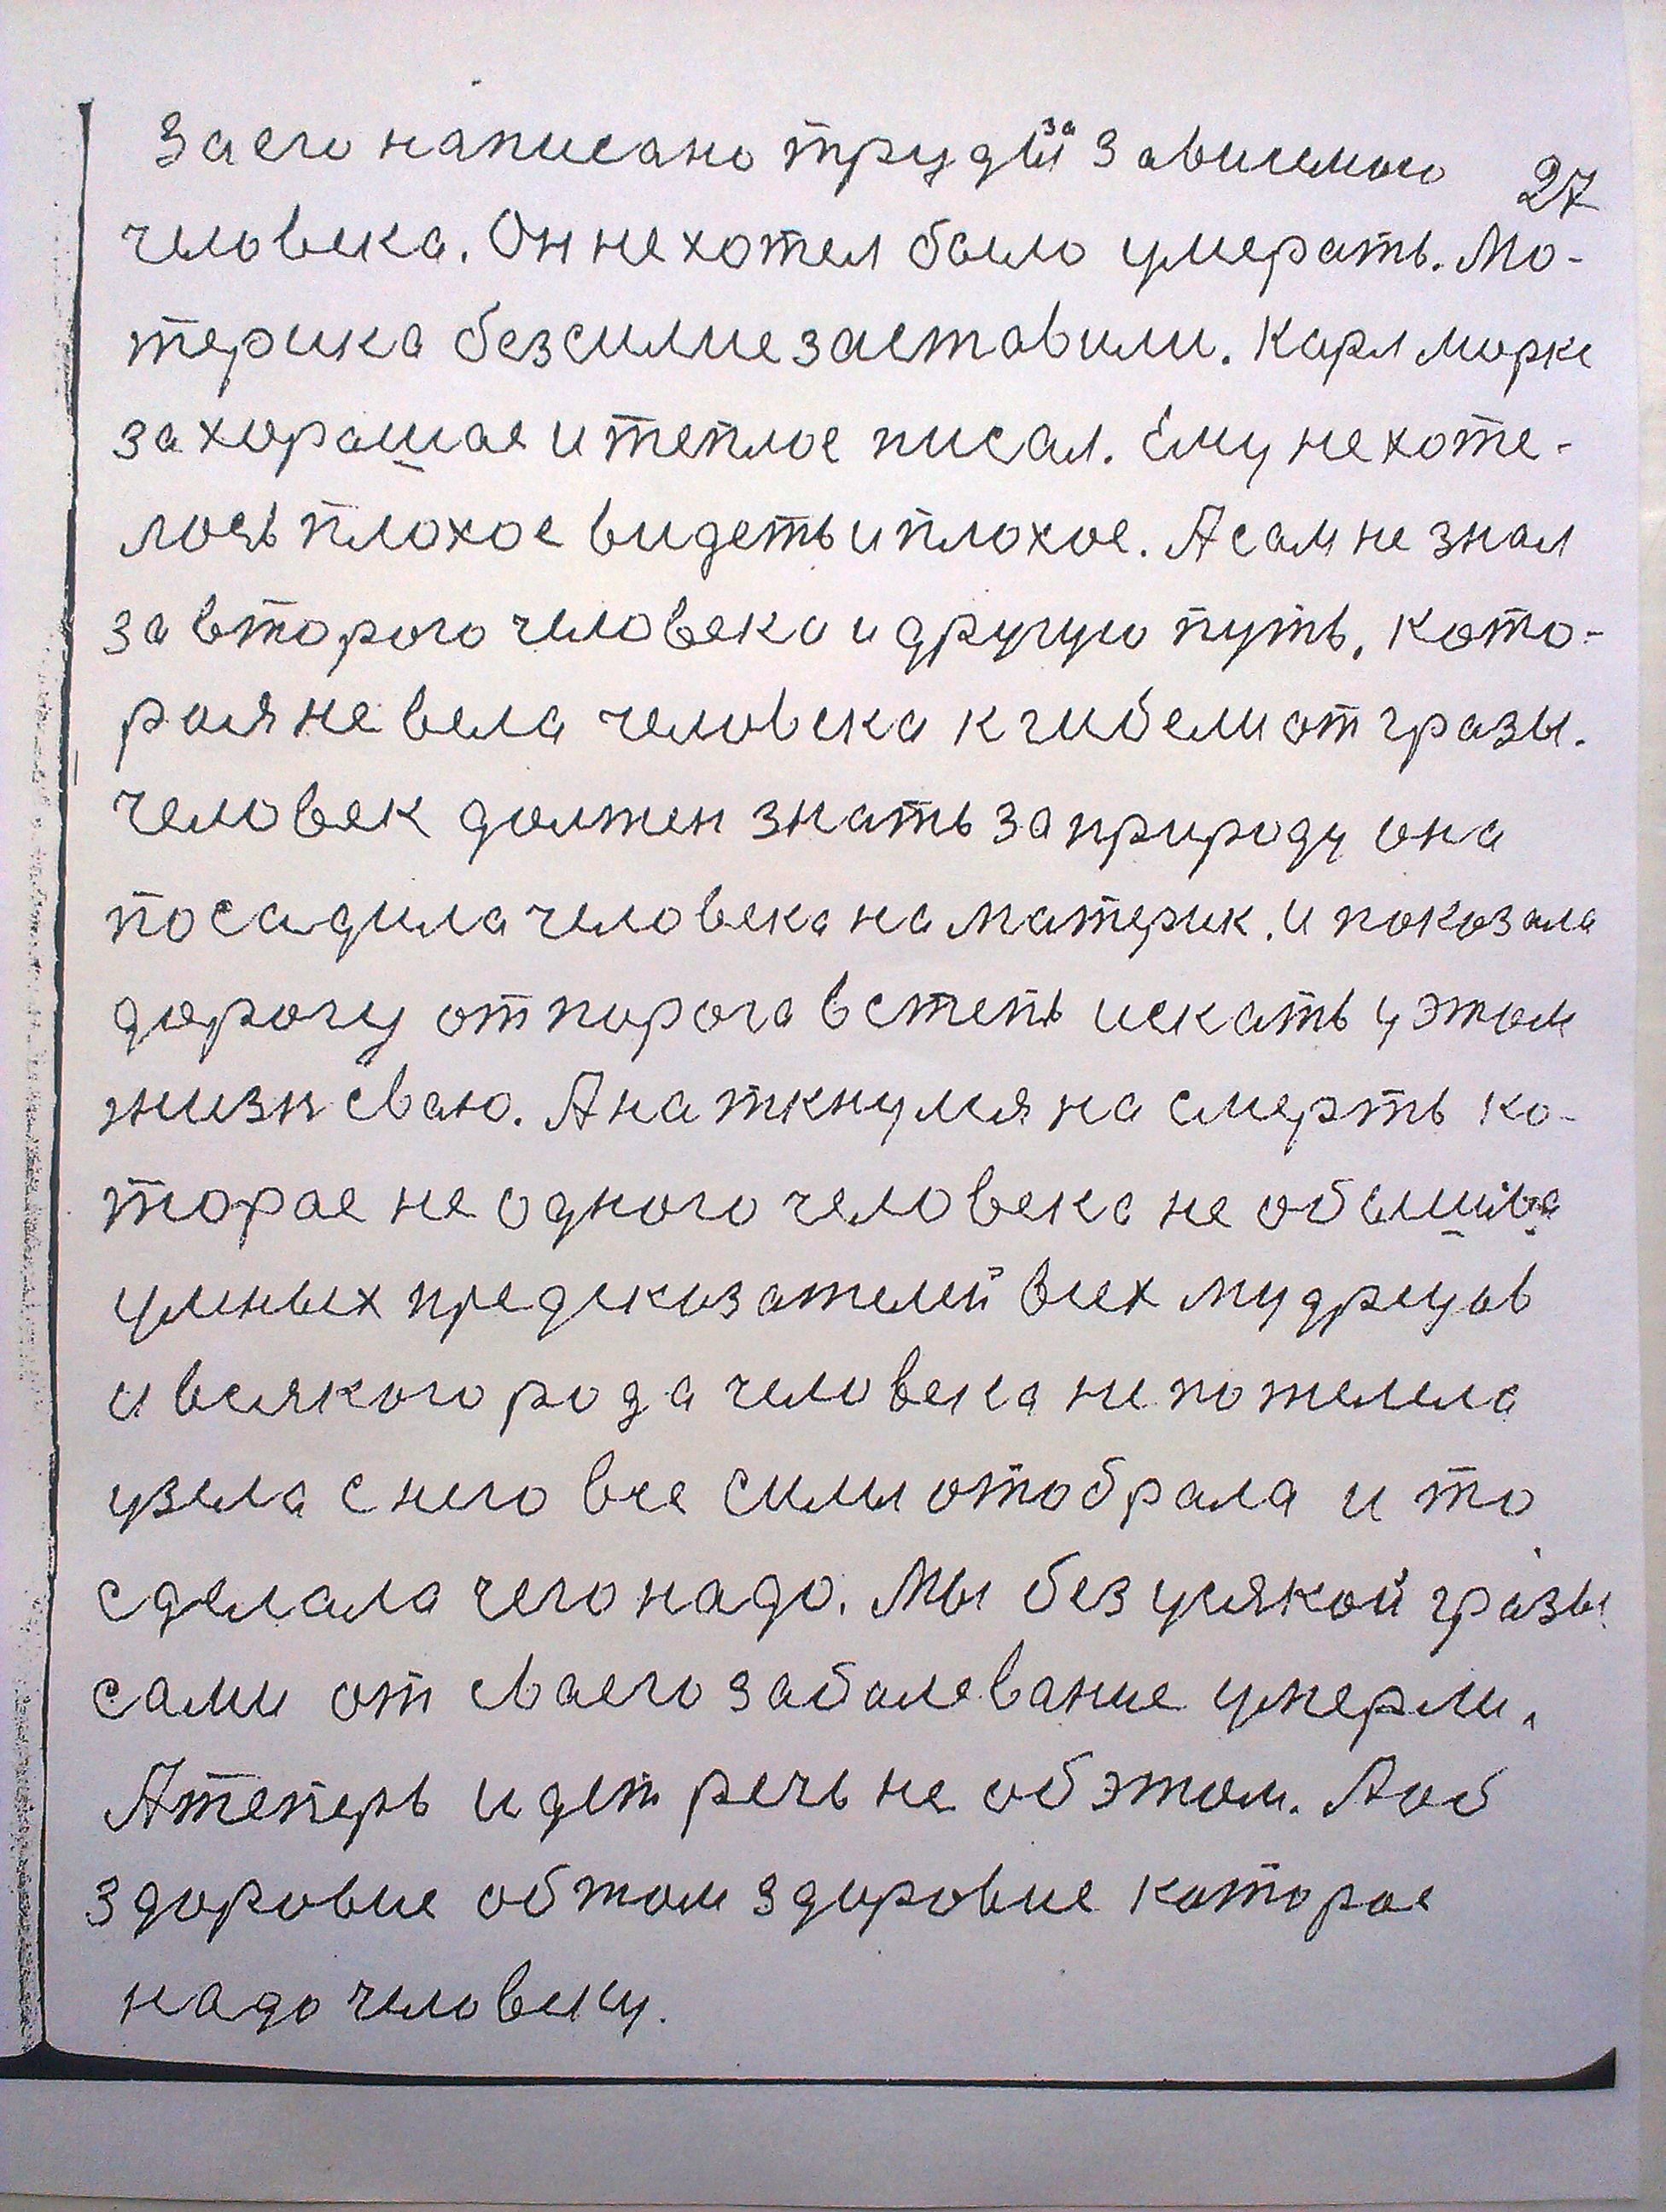 За его написано труды за зависимого 27
человека. Он не хотел было умерать. Мо-
терика безсилие заставили. Карл маркс
за хорошае и теплое писал. Ему не хоте-
лось плохое видеть и плохое. А сам не знал
за второго человека и другую путь, кото-
рая не вела человека к гибели от гразы.
Человек должен знать за природу она
посадила человека на материк. и показала
дорогу от порога в степь искать у этом
жизн сваю. А наткнулся на смерть ко-
торае не одного человека не
умных предсказателей всех мудрецов
и всякого рода человека не пожелела
узяла с него все силы отобрала и то
сделала чего надо. Мы без усякой гразы
сами от сваего забалевание умерли.
А теперь идет речь не об этом. А об
здоровие об том здоровие каторае
надо человеку.